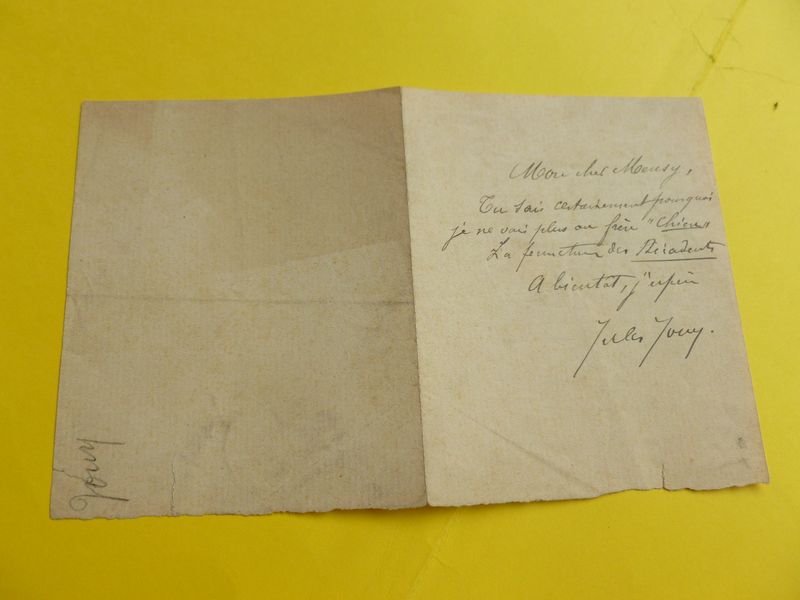 Mon cher Meusy,
Tu sais certainement pourquoi
je ne vais plus au frère "Chien"
La fermeture des Décadents
A bientot, j'espère
Jules Jouy.
Jouy